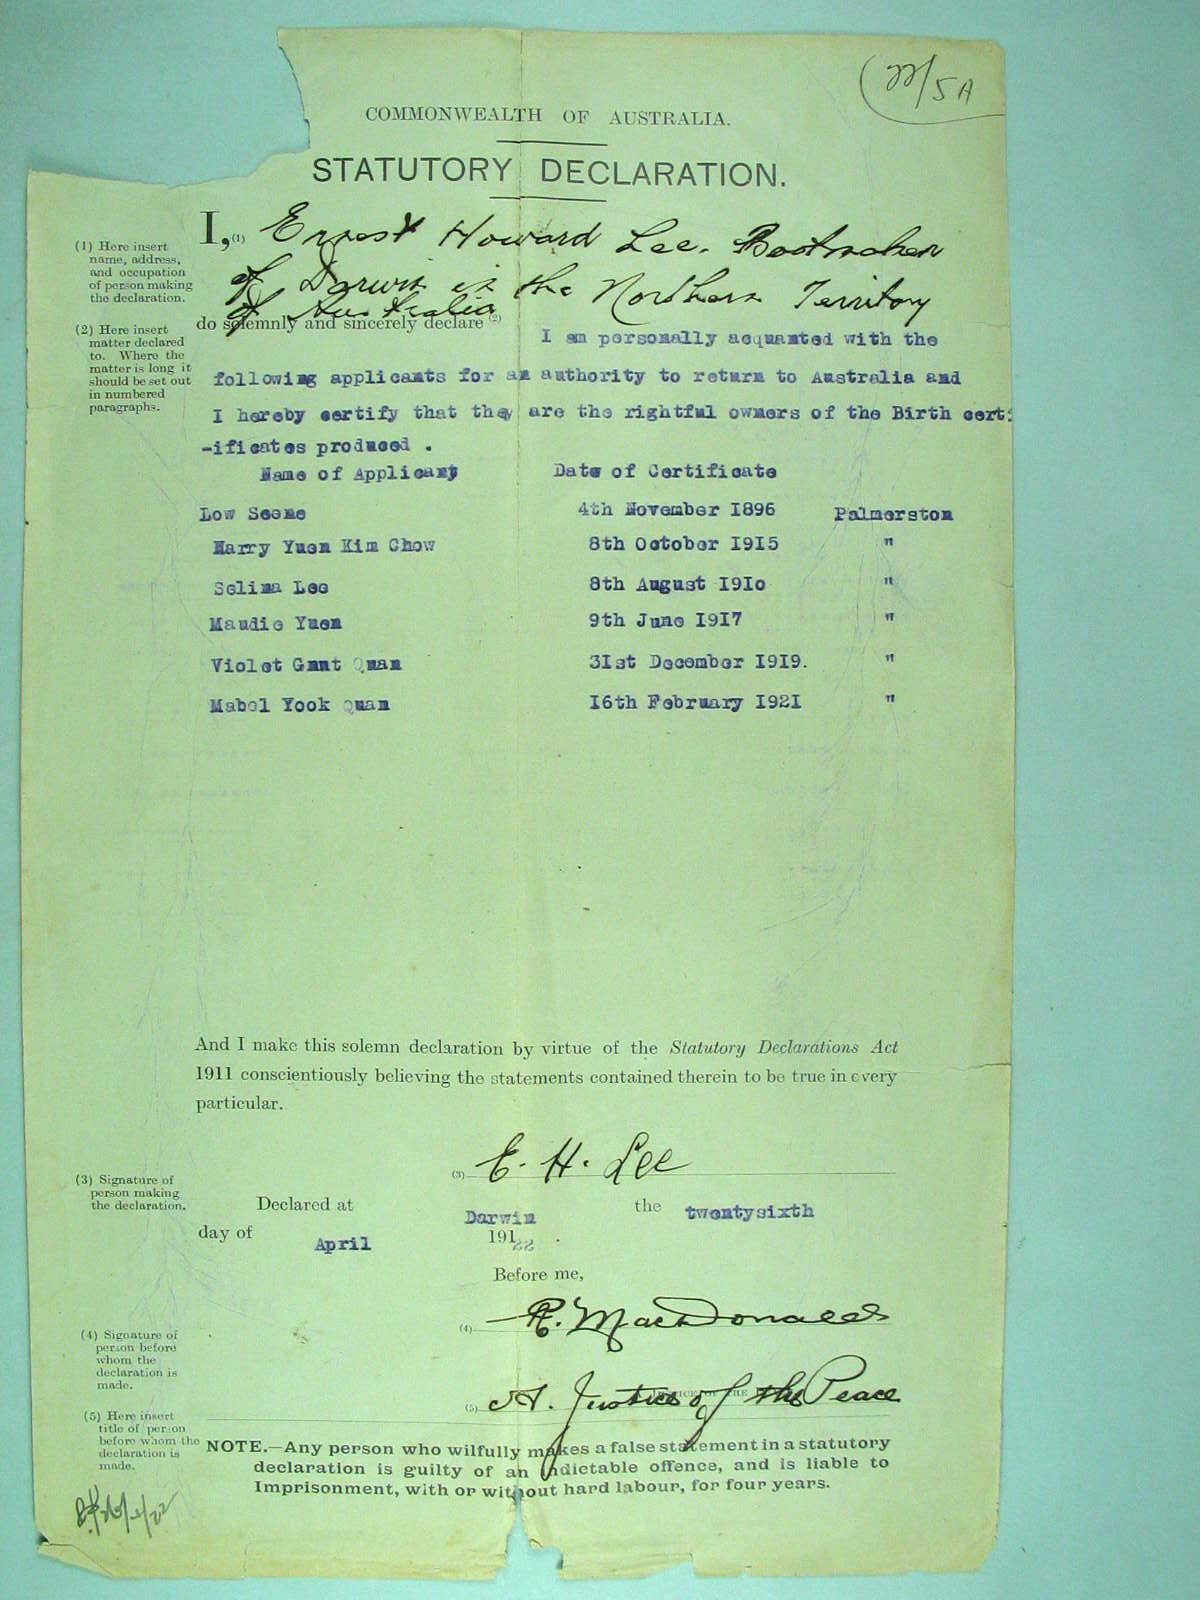 22/5A
COMMONWEALTH OF AUSTRALIA.
STATUTORY DECLARATION.
I, (1) Ernest Howard Lee. Bootmaker
of Darwin in the Northern Territory
of Australia
(1) Here insert
name, address,
and occupation
of person making
the declaration.
do solemnly and sincerely declare (2)
(2) Here insert
matter declared
to. Where the
matter is long it
should be set out
in numbered
paragraphs.
I am personally acquanted with the
following applicants for an authority to return to Australia and
I hereby certify that they are the rightful owners of the Birth cert
-ificates produced .
Name of Applicant Date of Certificate
Low Seene 4th November I896 Palmerston
Harry Yuen Kim Chow 8th October I9I5 "
Selina Lee 8th August I9Io "
Maudie Yuen 9th June I9I7 "
Violet Gnnt Quan 3Ist December I9I9. "
Mabel Yook Quan I6th February I92I "
And I make this solemn declaration by virtue of the Statutory Declarations Act
1911 conscientiously believing the statements contained therein to be true in every
particular.
(3) E. H. Lee
(3) Signature of
person making
the declaration.
Declared at Darwin the twentysixth
day of April 191 22 .
Before me,
(4) R. MacDonald
(4) Signature of
person before
whom the
declaration is
made.
(5) A. Justice of the Peace
(5) Here insert
title of person
before whom the
declaration is
made.
NOTE.—Any person who wilfully makes a false statement in a statutory
declaration is guilty of an indictable offence, and is liable to
Imprisonment, with or without hard labour, for four years.